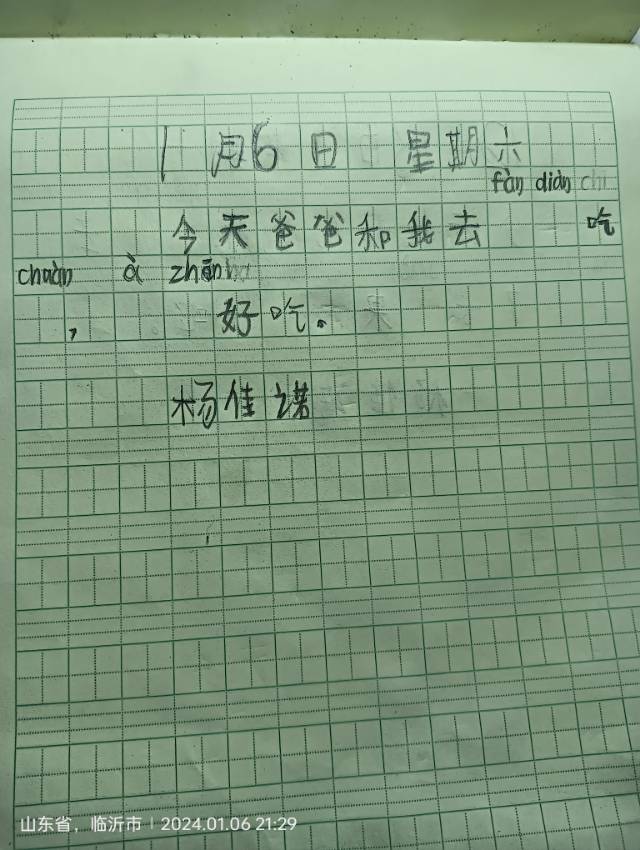 1月6日 星期六
fàn diàn chi
今天爸爸和我去 吃
chuàn à zhēn
，好吃。
杨佳诺
山东省，临沂市 | 2024.01.06 21:29